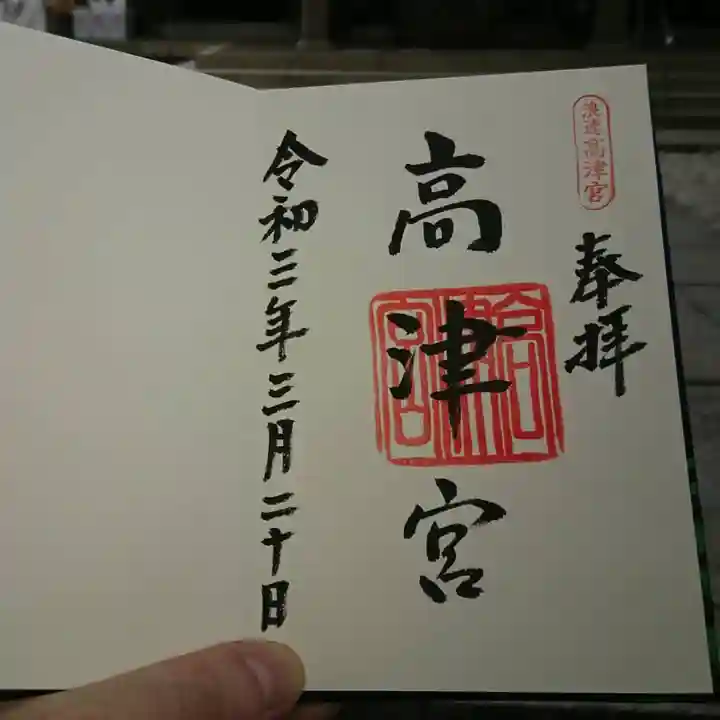 浪速高津宮
奉拝
高津宮
高津宮
令和三年三月二十日